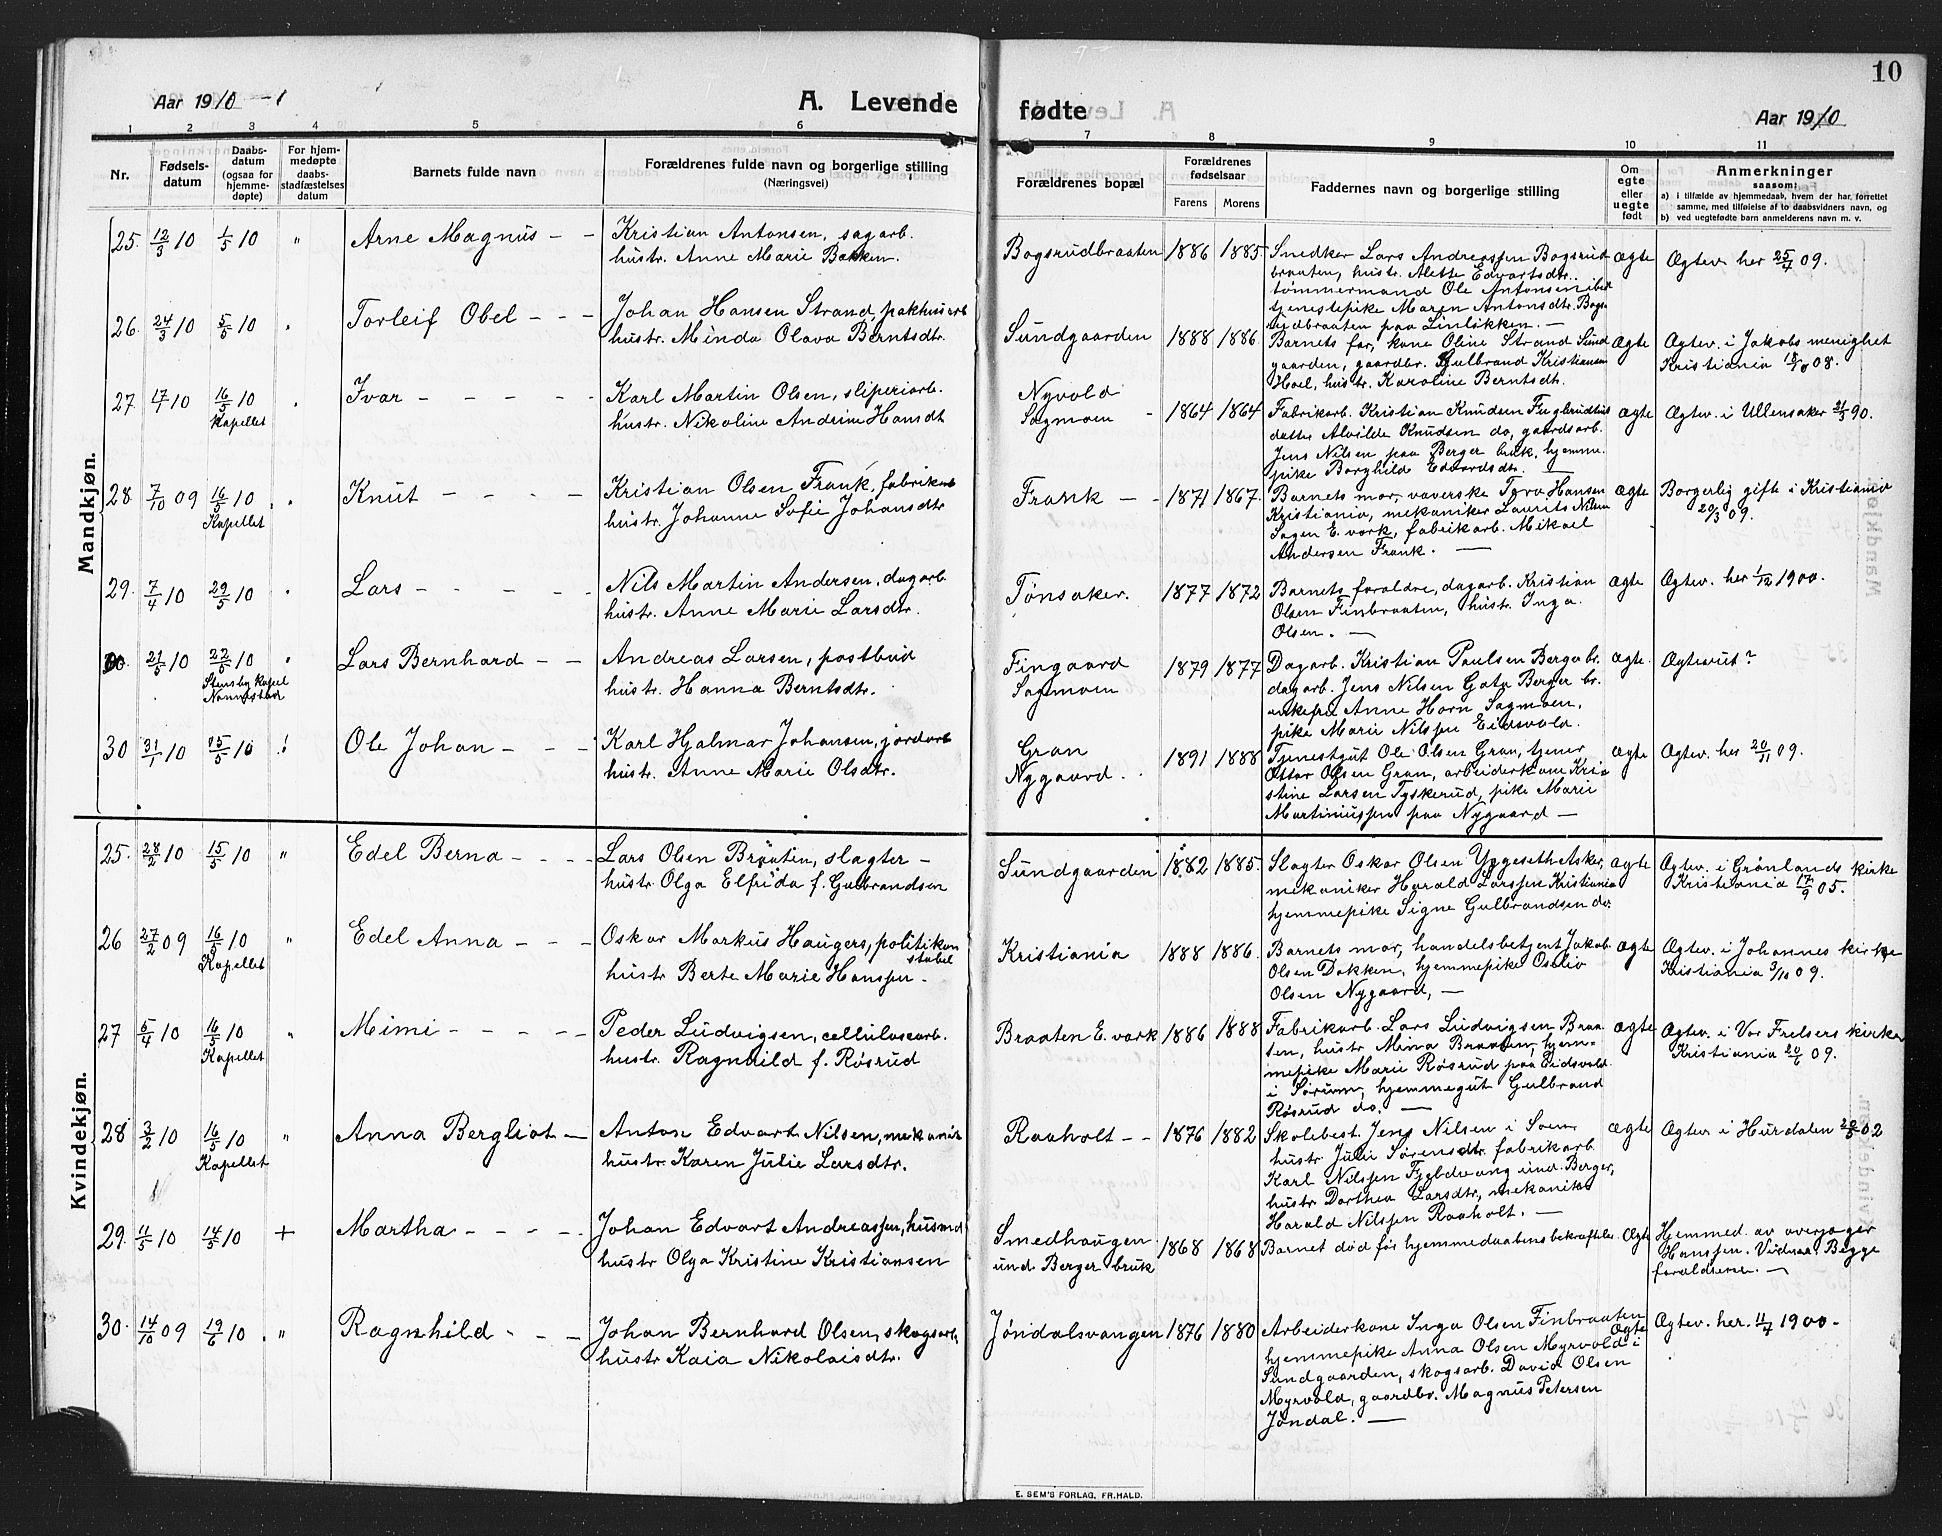 10
Aar 1910
A. Levende fødte
Aar 1910
1 2 3 4 5 6 7 8 9 10 11
Nr.
Fødsels-
datum
Daabs-
datum
(ogsaa for
hjemme-
døpte)
For hjem-
medøpte
daabs-
stadfæstelses
datum
Barnets fulde navn
Forældrenes fulde navn og borgerlige stilling
(Næringsvei)
Forældrenes bopæl
Forældrenes
fødselsaar
Farens Morens
Faddernes navn og borgerlige stilling
Om
egte
eller
uegte
født
Anmerkninger
saasom:
a) i tilfælde av hjemmedaab, hvem der har forrettet
samme, med tilføielse af to daabsvidners navn, og
b) ved uegtefødte barn anmelderens navn m. v.
Mandkjøn.
25. 12/3 10 1/5 10 " Arne Magnus - -
Kristian Antonsen, sagarb.
hustr. Anne Marie Bakken.
Bogsrudbraaten 1886 1885
Snedker Lars Andreassen Bogsrud
braaten, hustr. Alette Edvartsdtr.
tømmermand Ole Antonsen ibid
tjenestepike Maren Antonsdtr. Bogs
rudbraaten paa Linløkken. —
ægte
Ægtev. her 25/4 09.
26. 24/3 10 5/5 10 Torleif Obel - - -
Johan Hansen Strand, pakhusarb
hustr. Minda Olava Berntsdtr.
Sundgaarden 1888 1886
Barnets far, kone Oline Strand Sund
gaarden, gaardbr. Gulbrand Kristiansen
Hoel, hustr. Karoline Berntsdt.
ægte
Ægtev. i Jakobs menighet
Kristiania 08.
27. 17/1 10 16/5 10 Kapellet Ivar - - - - -
Karl Martin Olsen, sliperiarb.
hustr. Nikoline Andrine Hansdt
Nyvold
Sagmoen - 1864 1864
Fabrikarb. Kristian Knudsen
datter Alvilde Knudsen do, gaardsarb.
Jens Nilsen paa Berger bruk, hjemme
pike Borghilde Edvardsdtr. —
ægte
Ægtev. i Ullensaker 90.
28 7/10 09 16/5 10 Kapellet Knut - - - -
Kristian Olsen Frank, fabrikarb
hustr. Johanne Sofie Johansdtr
Frank - - 1871 1867.
Barnets mor, væverske Tora Hansen
Kristiania, mekaniker Laurits Nilsen
Sagen E. værk, fabrikarb. Mikael
Andersen Frank. —
ægte
Borgerlig gifte i Kristiania
20/3 09.
29. 7/4 10 29/5 10 Lars - - - - -
Nils Martin Andersen, dagarb
hustr. Anne Marie Larsdtr.
Tønsaker. 1877 1872
Barnets forældre, dagarb. Kristian
Olsen Finbraaten, hustr. Inga
Olsen. —
ægte
Ægtev. her 1/12 1900.
21/5 10 22/5 10 Stensby kapel Nannestad Lars Bernhard - -
Andreas Larsen, postbud
hustr. Hanna Berntsdtr.
Fingaard
Sagmoen 1879 1877
Dagarb. Kristian Paulsen Berger br.
dagarb. Jens Nilsen Gata Berger br.
enkefru Anne Horn Sagmoen,
pike Marie Nilssen Eidsvold.
ægte.
Ægteviet?
30 31/1 10 15/5 10 Ole Johan - - -
Karl Hjalmar Johansen, jordarb
hustr. Anne Marie Olsdtr.
Gran
Nygaard. 1891 1888
Tjenestgut Ole Olsen Gran, tjener
Ottar Olsen Gran, arbeiderkone Kri-
stine Larsen Tyskerud, pike Marie
Martiniussen paa Nygaard —
ægte
Ægtev. her 20/11 09.
Kvindekjøn.
25. 28/2 10 15/5 10 " Edel Berna - - - -
Lars Olsen Braaten, slagter -
hustr. Olga Elfrida f. Gulbrandsen
Sundgaarden 1882 1885.
Slagter Oskar Olsen Yggeseth Asker,
mekaniker Harald Larssen Kristiania
hjemmepike Signe Gulbrandsen do.
ægte
Ægtev. i Grønlands kirke
Kristiania 17/9 05.
26 27/2 09 16/5 10 Kapellet " Edel Anna - - -
Oskar Markus Haugers, politikon
stabel
hustr Berte Marie Hanssen -
Kristiania 1888 1886.
Barnets mor, handelsbetjent Jakob
Olsen Dokken, hjemmepike Oselie
Olsen Nygaard, —
ægte
Ægtev. i Johannes kirke
Kristiania 3/10 09.
27 5/4 10 16/5 10 Kapellet " Mimi - - - - -
Peder Ludvigsen, cellulosearb.
hustr. Ragnhild f. Røsrud
Braaten E. værk 1886 1888
Fabrikarb. Lars Ludvigsen Braa
ten, hustr Mina Braaten, hjem-
mepike Marie Røsrud paa Eidsvold
i Sørum, hjemmegut Gulbrand
Røsrud do. —
ægte
Ægtev. i Vor Frelsers kirke
Kristiania 20/6 09.
28 3/2 10 16/5 10 Kapellet " Anna Bergliot -
Anton Edvart Nilsen, mekanik
hustr. Karen Julie Larsdtr.
Raaholt - - 1876 1882
Skolebest. Jens Nilsen i
hustr Julie Sørensdtr. fabrikarb.
Karl Nilssen und. Berger,
hustr Dorthea Larsdtr, mekaniker
Harald Nilssen Raaholt. —
ægte
Ægtev. i Hurdalen 02
29. 11/5 10 14/5 10 + Martha - - - -
Johan Edvart Andreassen, husmd
hustr Olga Kristine Kristiansen
Smedhaugen
und Berger bruk 1868 1868
Barnet død før hjemmedaabens bekræftelse. Ægte
Hjemmed. av overjæger
Hanssen. Vidner: Begge
forældrene. —
30. 14/10 09 19/6 10 " Ragnhild - - -
Johan Bernhard Olsen, skogsarb,
hustr Kaia Nikolaisdtr.
Jøndalsvangen 1876 1880
Arbeiderkone Inga Olsen Finbraaten
hjemmepike Anna Olsen Myrvold i
Sundgaarden, skogsarb. David Olsen
Myrvold, gaardbr. Magnus Petersen
Jøndal. —
Ægte
Ægtev. her. 11/7 1900-
E. SEM'S FORLAG, FR.HALD.